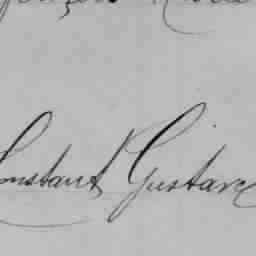 Constant Gustave